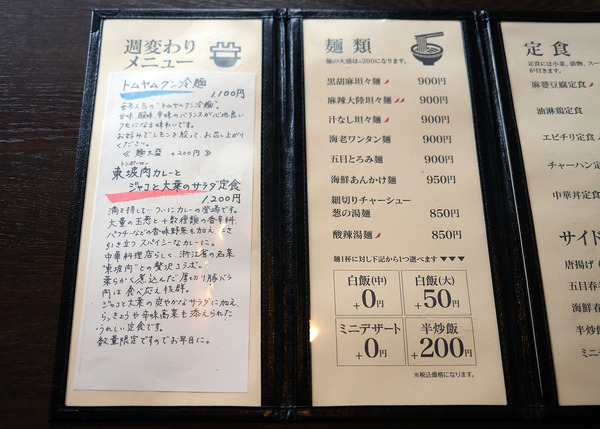 週変わり
メニュー
トムヤムクン冷麺
1,100円
毎年人気の"トムヤムクン冷麺"。
甘味、酸味、辛味のバランスが心地良い
クセになる味わいです。
お好みでレモンを絞って、お召し上がり
ください。
≪麺大盛 +200円≫
トンポーロー
東坡肉カレーと
ジャコと大葉のサラダ定食
1,200円
満を持して…ついにカレーの登場です。
大量の玉葱と十数種類の香辛料、
パクチーなどの香味野菜も加え
引き立つスパイシーなカレーに。
中華料理店らしく、浙江省の名菜
"東坡肉"との贅沢コラボ。
柔らかく煮込んだ厚切り豚バラ
肉は食べ応え抜群。
ジャコと大葉の爽やかなサラダに加え、
らっきょうや辛味高菜も添えられた
うれしい定食です。
数量限定ですのでお早目に。
麺類
麺の大盛は+200になります。
黒胡麻担々麺 900円
麻辣大陸坦々麺 900円
汁なし担々麺 900円
海老ワンタン麺 950円
五目とろみ麺 950円
海鮮あんかけ麺 950円
細切りチャーシュー
葱の湯麺 850円
酸辣湯麺 850円
麺1杯に対し下記から1つ選べます ▼▼▼
白飯(中)
+0円
白飯(大)
+50円
ミニデザート
+0円
半炒飯
+200円
※税込価格になります。
定食
定食には小菜、漬物、スー
が付きます。
麻婆豆腐定食
油淋鶏定食
エビチリ定食
チャーハン定
中華丼定食
サイド
唐揚げ
五目春
海鮮春
半炒飯
ミニデ